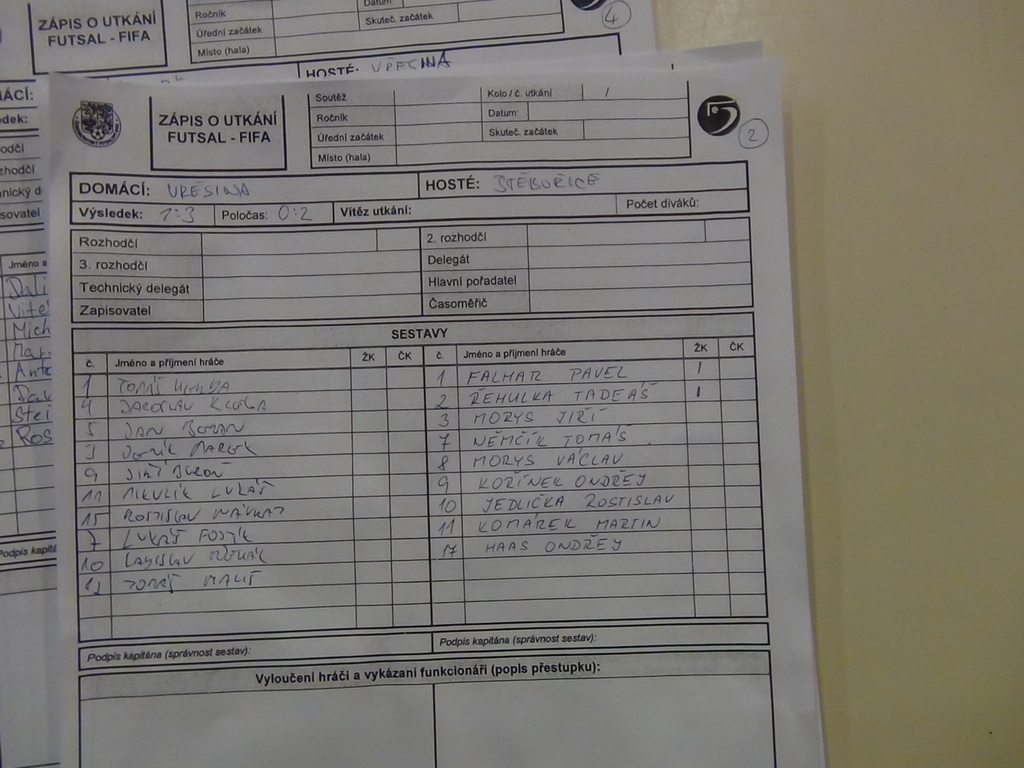 ZÁPIS O UTKÁNÍ
FUTSAL - FIFA
Ročník
Úřední začátek
Místo (hala)
Datum
Skuteč. začátek
4
HOSTÉ: VŘESINA
ZÁPIS O UTKÁNÍ
FUTSAL - FIFA
Soutěž Kolo / č. utkání /
Ročník Datum:
Úřední začátek Skuteč. začátek
Místo (hala)
2
DOMÁCÍ: VŘESINA HOSTÉ: STĚBOŘICE
Výsledek: 1:3 Poločas: 0:2 Vítěz utkání: Počet diváků:
Rozhodčí 2. rozhodčí
3. rozhodčí Delegát
Technický delegát Hlavní pořadatel
Zapisovatel Časoměřič
SESTAVY
č. Jméno a příjmení hráče ŽK ČK č. Jméno a příjmení hráče ŽK ČK
1 TOMÁŠ 1 FALHAR PAVEL I
4 JAROSLAV 2 ŘEHULKA TADEÁŠ I
5 JAN 3 MORYS JIŘÍ
3 MAREK 7 NĚMČÍK TOMÁŠ
9 JIŘÍ 8 MORYS VÁCLAV
11 MIKULÍK LUKÁŠ 9 KOŘÍNEK ONDŘEJ
15 ROSTISLAV 10 JEDLIČKA ROSTISLAV
7 LUKÁŠ 11 KOMÁREK MARTIN
10 LADISLAV 17 HAAS ONDŘEJ
12 TOMÁŠ MALIŠ
Podpis kapitána (správnost sestav): Podpis kapitána (správnost sestav):
Vyloučení hráči a vykázaní funkcionáři (popis přestupku):